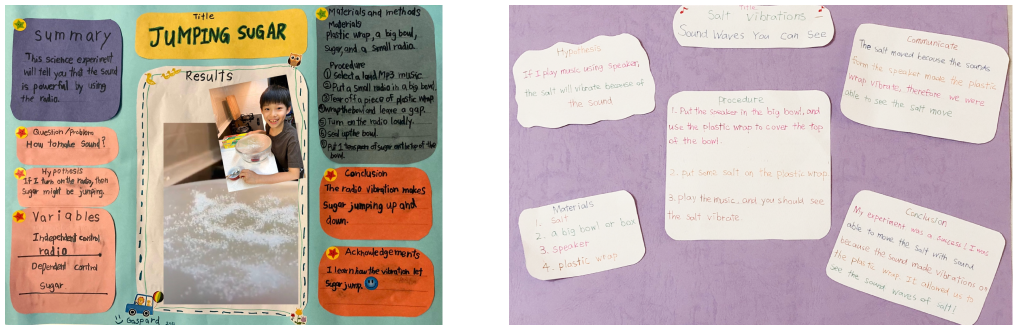 Title
JUMPING SUGAR
Summary
This science experiment
will tell you that the sound
is powerful by using
the radio.
Question/Problem
How to make Sound?
Hypothesis
If I turn on the radio, then
Sugar might be jumping.
Variables
Independent control
radio
Dependent control
Sugar
Results
Gaspard
Materials and methods
Materials
Plastic wrap, a big bowl,
Sugar, and a Small radio.
Procedure
① Select a loud MP3 music
② Put a Small radio in a big bowl.
③ Tear off a piece of plastic wrap
④ wrap the bowl and leave a gap.
⑤ Turn on the radio loudly.
⑥ Seal up the bowl.
⑦ Put 1 teaspoon of sugar on the top of the
bowl.
Conclusion
The radio vibration makes
Sugar jumping up and
down.
Acknowledgements
I learn how the vibration let
Sugar jump.
Title
Salt vibrations –
Sound Waves You Can See
Hypothesis
If I play music using speaker,
the salt will vibrate because of
the sound
Materials
1. Salt
2. a big bowl or box
3. speaker
4. plastic wrap
Procedure
1. Put the speaker in the big bowl, and
use the plastic wrap to cover the top
of the bowl.
2. put some salt on the plastic wrap
3. play the music, and you should see
the salt vibrate.
Communicate
The salt moved because the sounds
form the speaker made the plastic
wrap vibrate, therefore we were
able to see the salt move
Conclusion
My experiment was a success! I was
able to move the salt with sound
because the sound made vibrations on
the plastic wrap. It allowed us to
see the sound waves of salt!